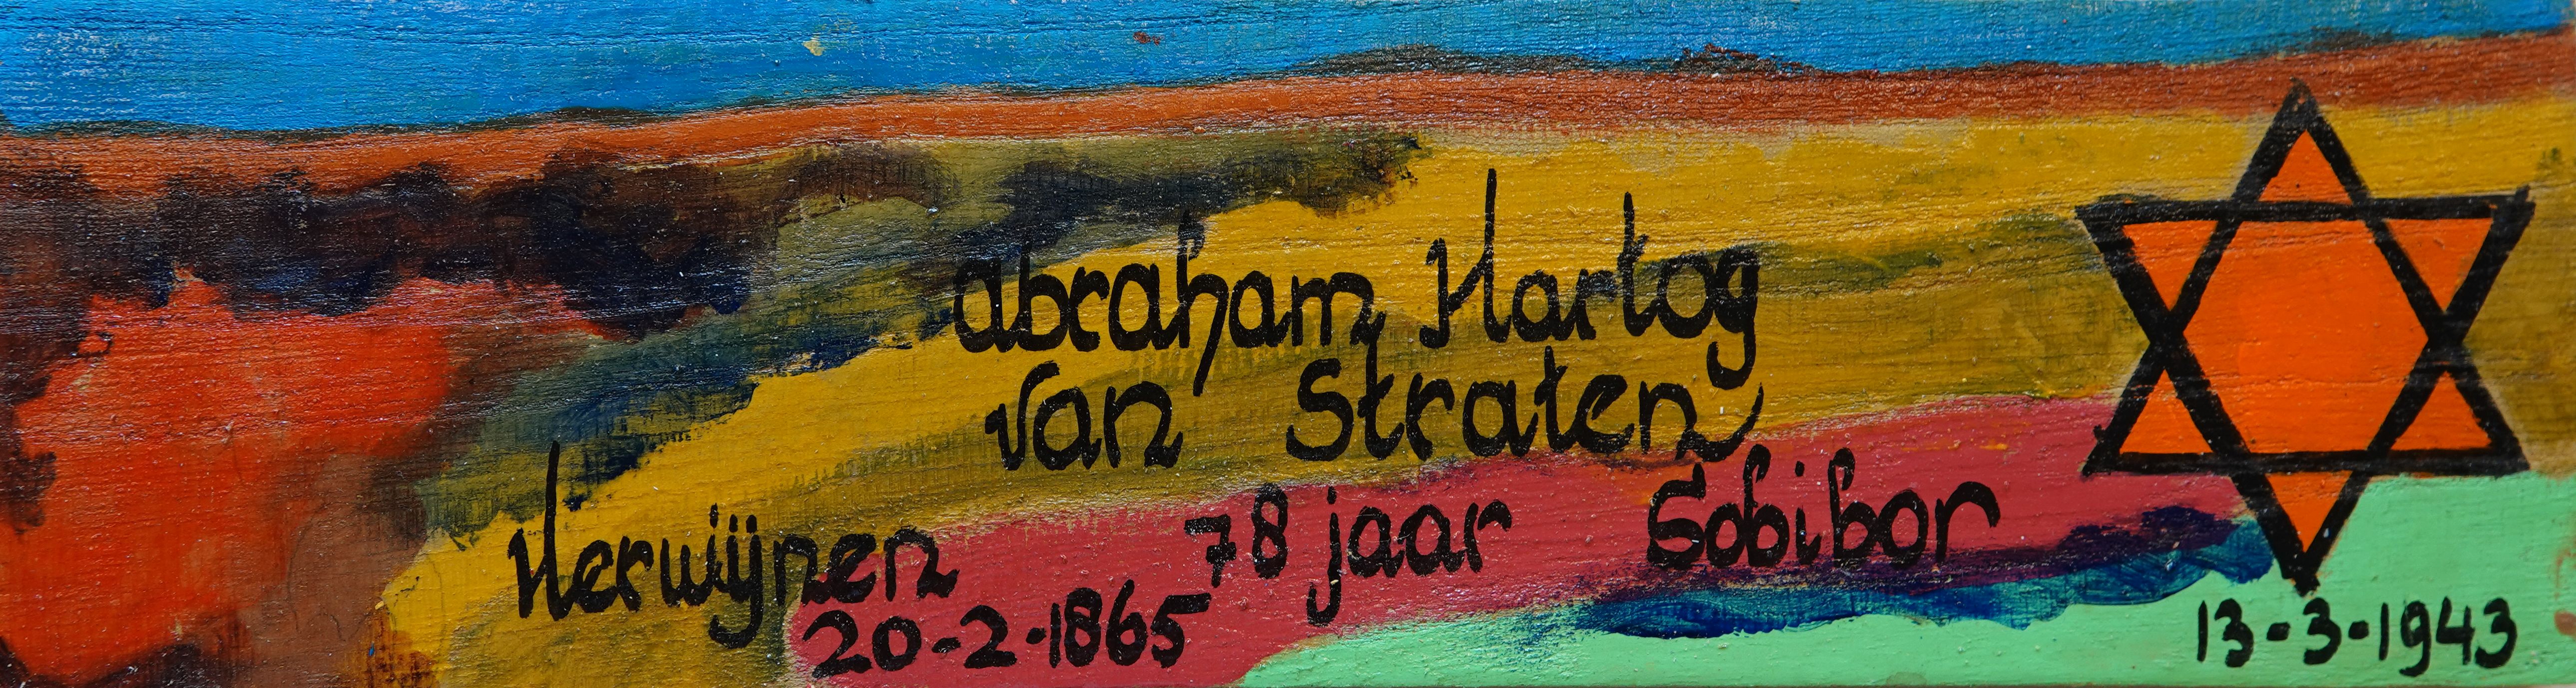 abraham Hartog
van Straten
Herwijnen 78 jaar Sobibor
20-2-1865 13-3-1943